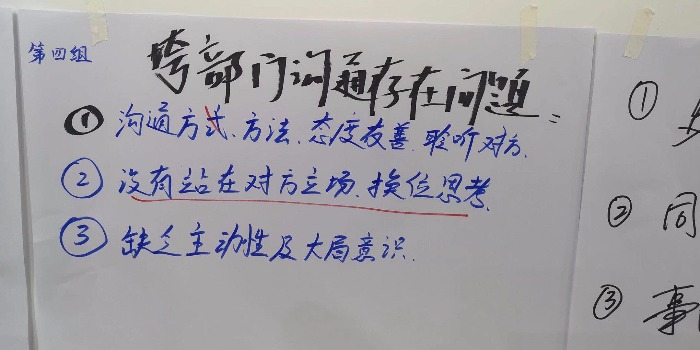 第四组
跨部门沟通存在问题：
① 沟通方式、方法、态度友善、聆听对方.
② 没有站在对方立场、换位思考.
③ 缺乏主动性及大局意识.
①
② 同
③ 事